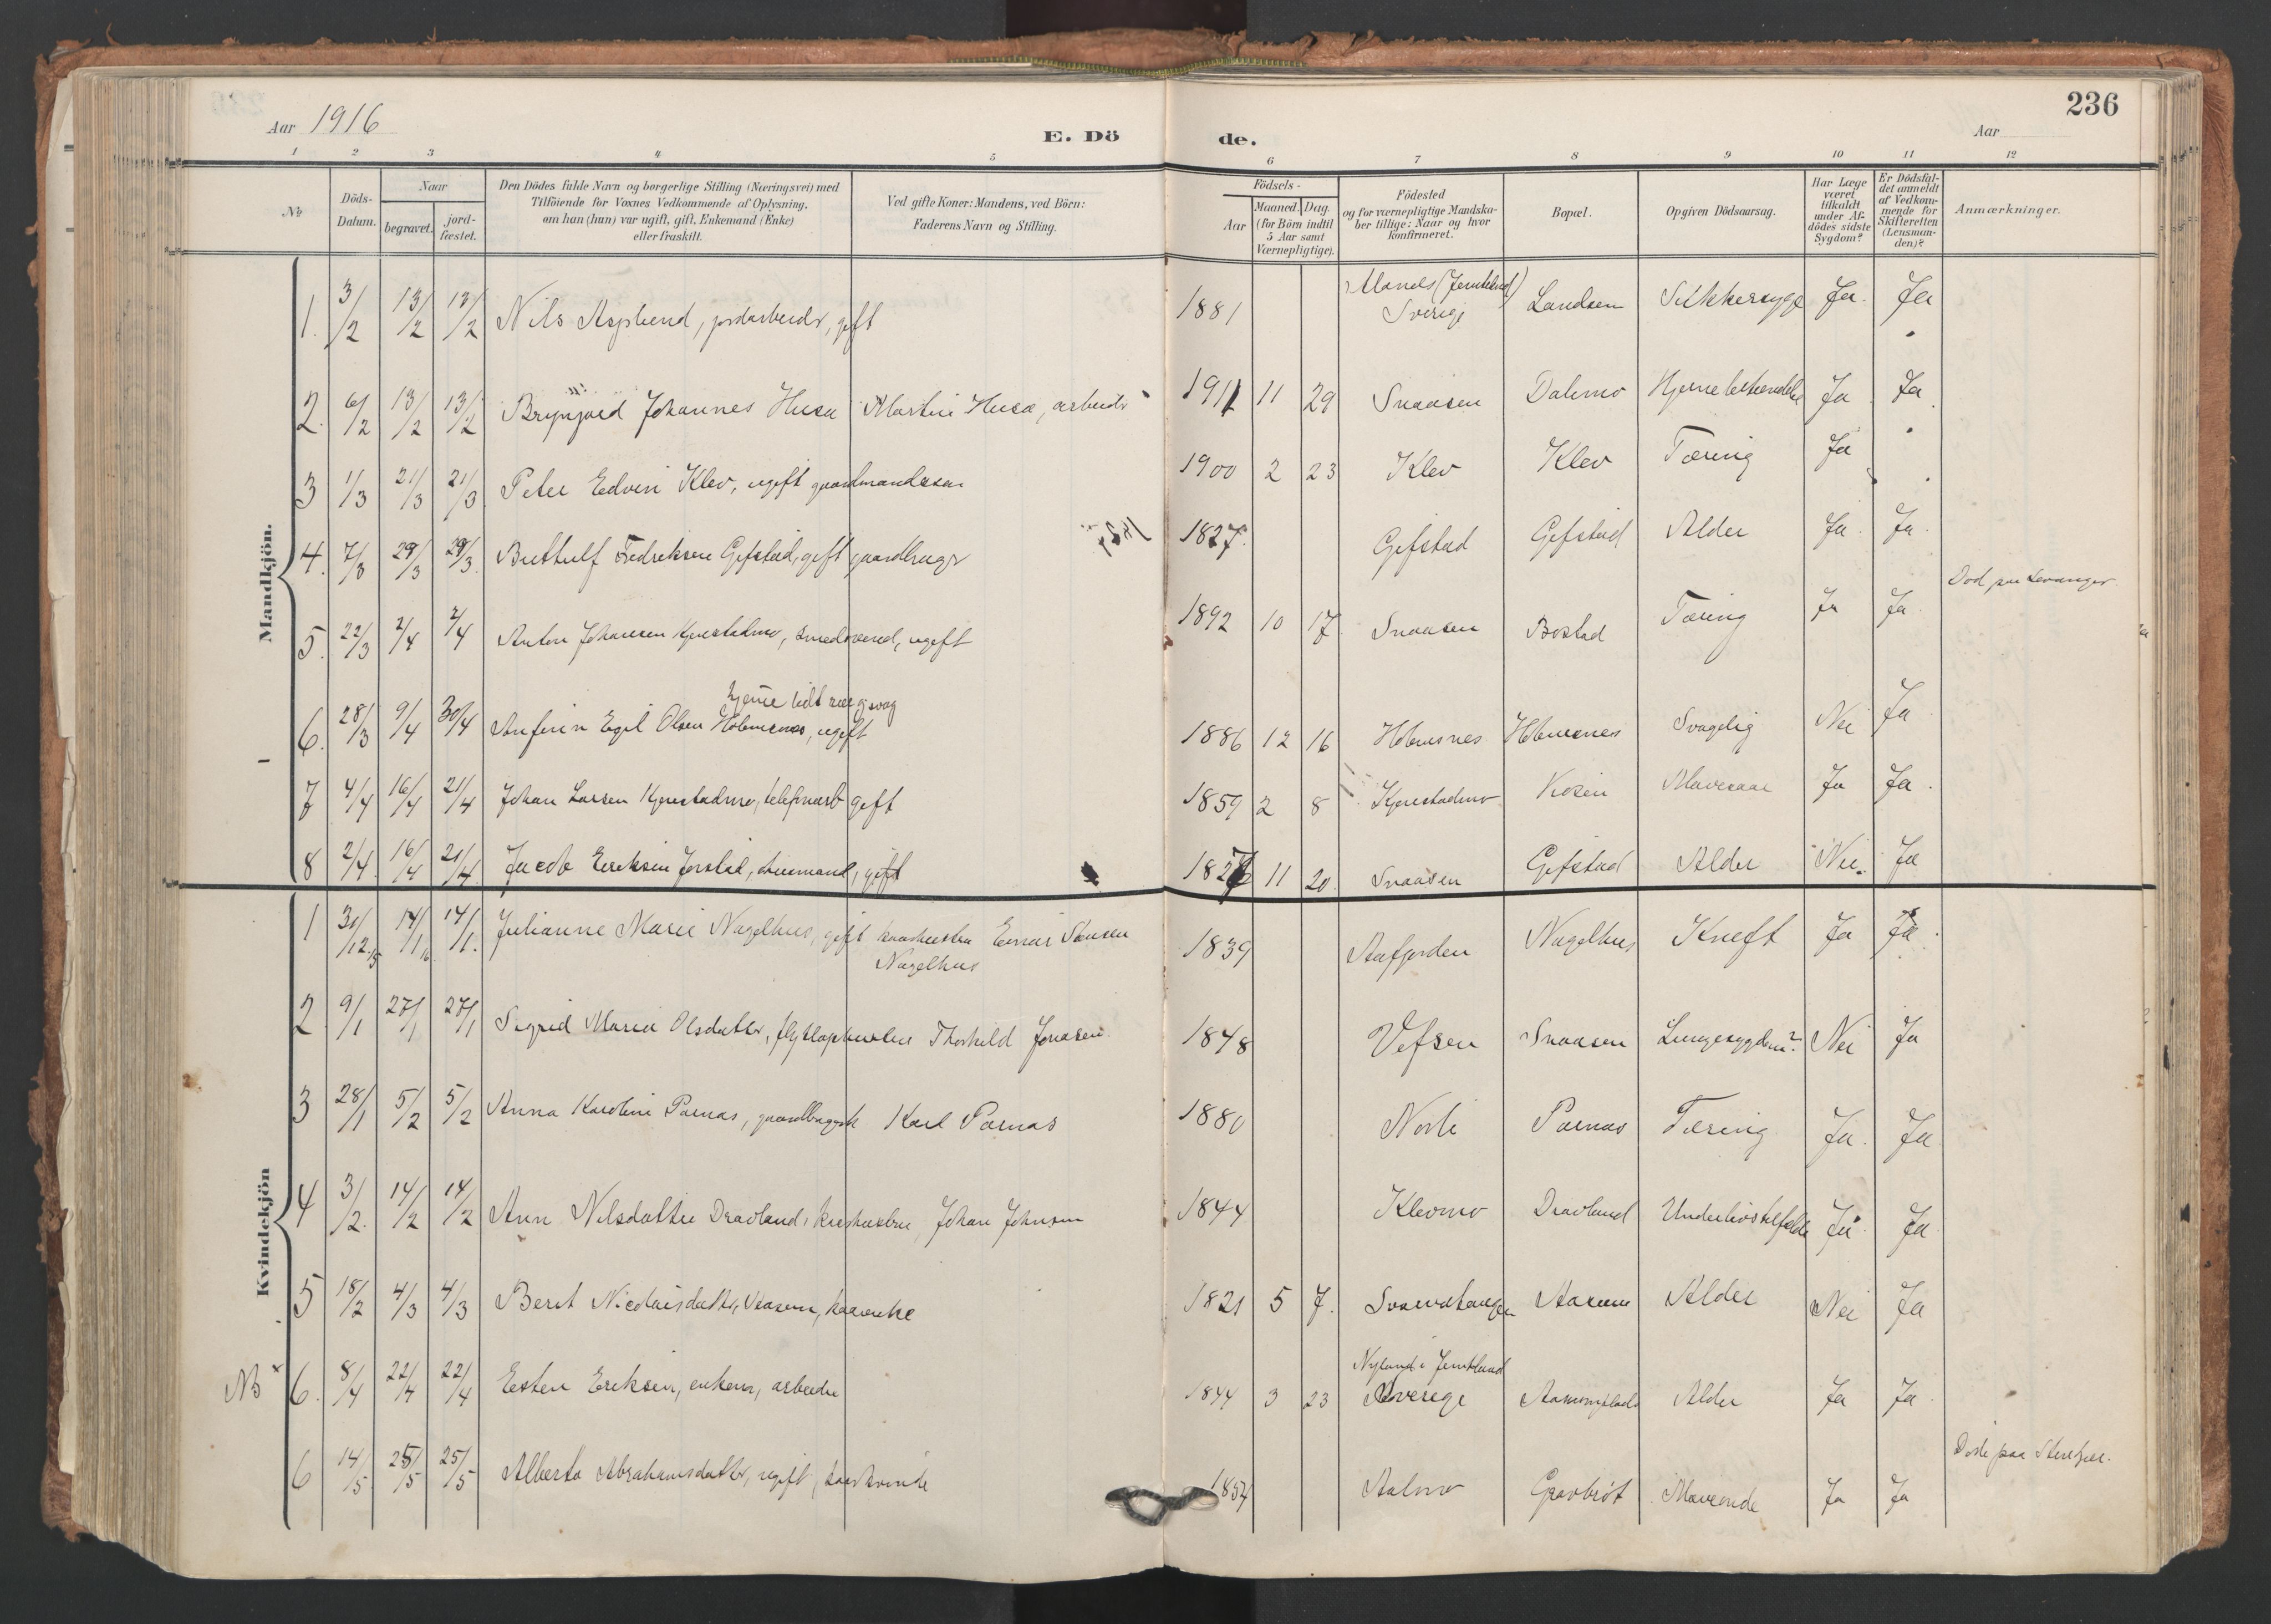 236
Aar 1916
E. Dö
de.
Aar
1 2 3 4 5 6 7 8 9 10 11 12
№
Döds-
Datum.
Naar
begravet.
jord-
fæstet.
Den Dödes fulde Navn og borgerlige Stilling (Næringsvei) med
Tilföiende for Voxnes Vedkommende af Oplysning,
om han (hun) var ugift, gift, Enkemand (Enke)
eller fraskilt.
Ved gifte Koner: Mandens, ved Börn:
Faderens Navn og Stilling.
Födsels-
Aar
Maaned. Dag.
(for Börn indtil
5 Aar samt
Værnepligtige).
Födested
og for værnepligtige Mandska-
ber tillige: Naar og hvor
konfirmeret.
Bopæl.
Opgiven Dödsaarsag.
Har Læge
været
tilkaldt
under Af-
dödes sidste
Sygdom?
Er Dödsfal-
det anmeldt
af Vedkom-
mende for
Skifteretten
(Lensman-
den)?
Anmærkninger.
Mandkjön.
1. 3/2 13/2 13/2 Nils Asplund, jordarbeidr, gift 1881 (Jemtland) Sverige Landsem Sukkersyge Ja. Ja
2. 6/2 13/2 13/2 Brynjard Johannes Husa Martin Husa, arbeidr 1911 11 29 Snaasen Dalemo Hjernebetændelse Ja Ja
3 1/3 21/3 21/3 Peter Edvin Klev, ugift gaardmandssøn 1900 2 23 Klev Klev Tæring Ja
4. 7/3 29/3 29/3 Fedriksen Gifstad, gift gaardbrugr 1827. Gifstad Gifstad Alder Ja. Ja.
5. 22/3 2/4 2/4 Anton Johansen Kjenstadmo, smedsvend, ugift 1892 10 17 Snaasen Bostad Tæring Ja Ja. Død paa Levanger
hjemme lidt
6. 28/3 9/4 30/4 Anfinn Egil Olsen Holmsnes, ugift 1886 12 16 Holmsnes Holmsnes Svagelig Nei Ja
7 4/4 16/4 21/4 Johan Larsen Kjenstadmo, telefonarb gift 1859 2 8 Kjenstadmo Mavesaar Ja Ja.
8 2/4. 16/4 21/4 Jacob Eriksen Jørstad, gift 11 20. Snaasen Gifstad Alder Nei. Ja
Kvindekjön
1 31/12 15 14/1 16 14/1. Julianne Marie Nagelhus, gift kaarhustru Einar Stensen
Nagelhus
1839 Aafjorden Nagelhus Kræft Ja Ja.
2. 9/1 27/1 27/1 Sigrid Maria Olsdatter, flytlaphustru Thorkild Jonasen. 1848 Vefsen Snaasen Lungesygdom? Nei Ja
3 28/1 5/2 5/2 Anna Karoline Parnas, Karl Parnas 1880 Nordli Parnas Tæring Ja. Ja
4 3/2. 14/2 14/2 Ann Nilsdatter Dravland, kaarhustru, Johan Johnsen 1844 Klevmo Dravland Underlivstilfælde Ja Ja.
5 18/2 4/3 4/3 Berit Nicolaisdatter, Aasum, kaarenke 1821 5 7. Aasum Alder Nei Ja
NB × 6. 8/4 22/4 22/4 Esten Eriksen, enkem, arbeider 1844 3 23 Nyland i Jemtland Sverige Aasumplads Alder Ja Ja.
6 14/5 25/5 25/5 Alberta Abrahamsdatter, ugift, kaarkvinde 1854 Aalmo Gravbrøt Maveonde Ja Ja Døde paa Stenkjær.